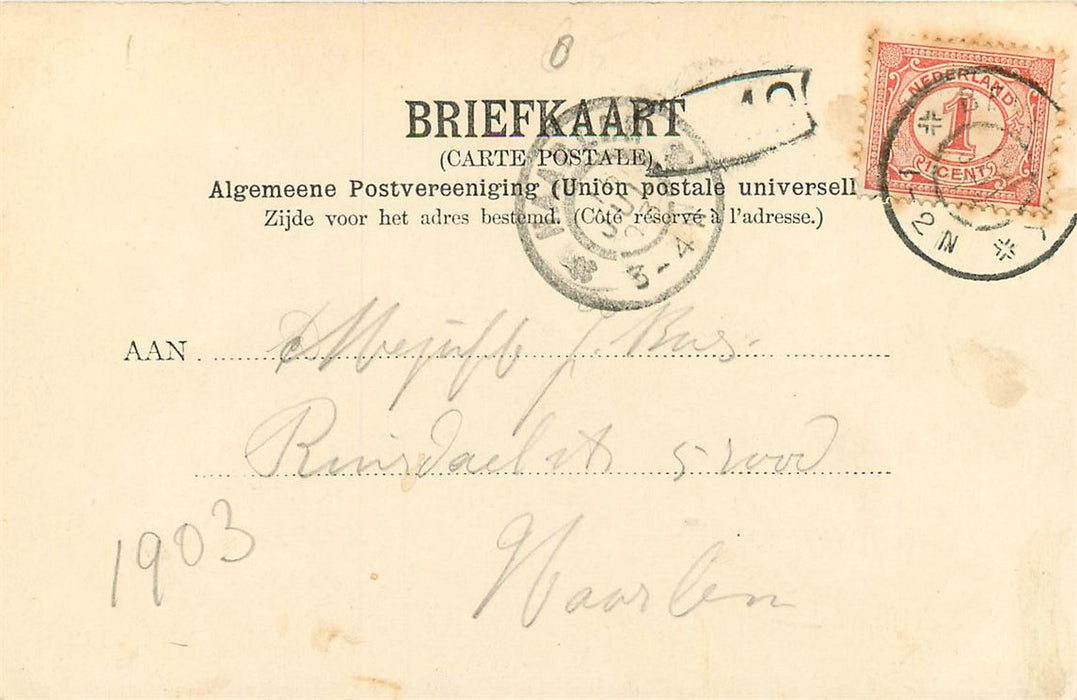 BRIEFKAART
(CARTE POSTALE)
Algemeene Postvereeniging (Union postale universell
Zijde voor het adres bestemd. (Côté réservé à l'adresse.)
NEDERLAND
1
1 CENT
3-4N
12N
AAN Mejuff J. Bus.
Ruisdaelst 5 rood
Haarlem
1903